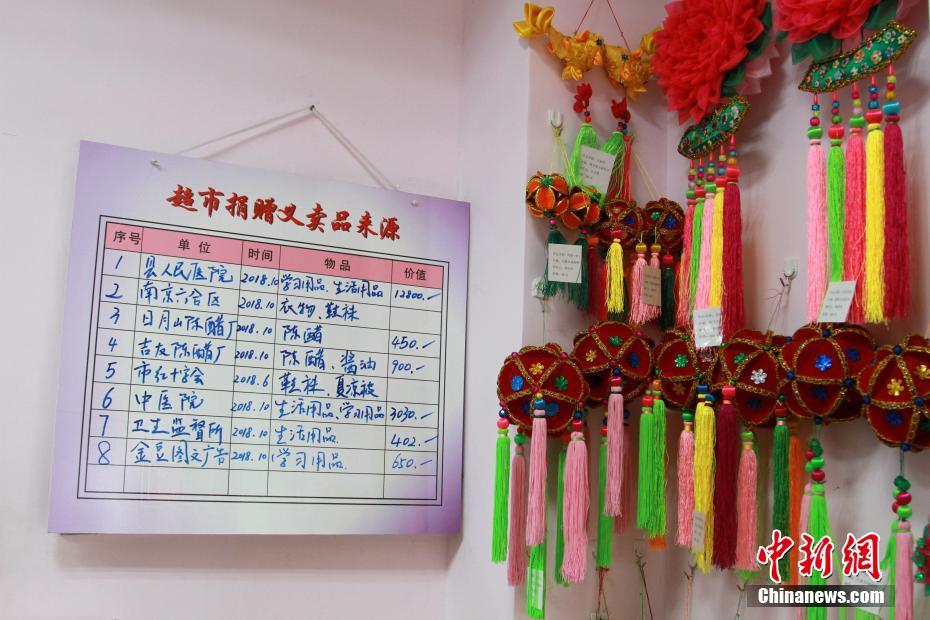 超市捐赠义卖品来源
序号 单位 时间 物品 价值
1 县人民医院 2018.10 学习用品、生活用品 12800.—
2 南京六合区 2018.10 衣物、鞋袜
3 日月山陈醋厂 2018.10 陈醋 450.—
4 吉友陈醋厂 2018.10 陈醋、酱油 900.—
5 市红十字会 2018.6 鞋袜、夏凉被
6 中医院 2018.10 生活用品、学习用品 3030.—
7 卫生监督所 2018.10 生活用品. 402.—
8 金豆图文广告 2018.10 学习用品. 650.—
中新网
Chinanews.com